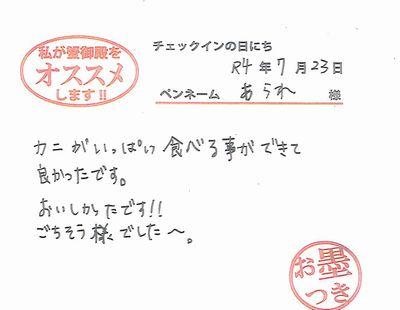 私が蟹御殿を
オススメ
します!!
チェックインの日にち
R4年7月23日
ペンネーム あられ 様
カニがいっぱい食べる事ができて
良かったです。
おいしかったです!!
ごちそう様でした〜。
お墨
つき